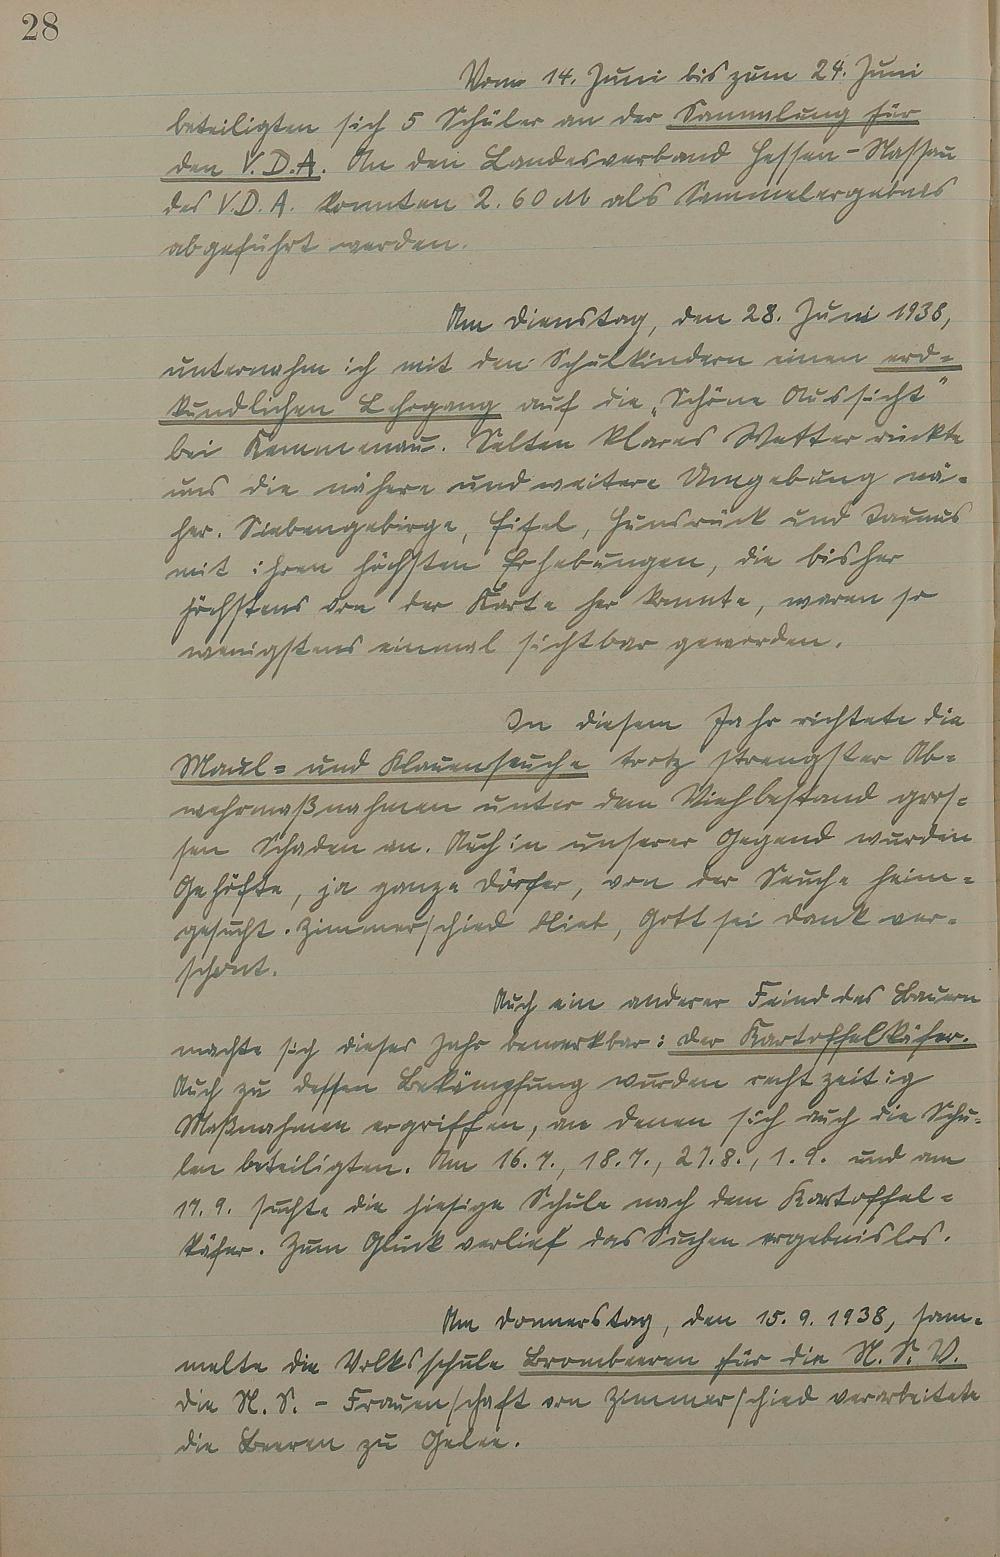 28
Vom 14. Juni bis zum 24. Juni
beteiligten sich 5 Schüler an der Sammlung für
den V.D.A. An den Landesverband Hessen-Nassau
des V.D.A. konnten 2.60 M als Sammelergebnis
abgeführt werden.
Am Dienstag, den 28. Juni 1938,
unternahm ich mit den Schulkindern einen erd=
kundlichen Lehrgang auf die „Schöne Aussicht"
bei Kemmenau. Selten klares Wetter rückte
uns die nähere und weitere Umgebung nä=
her. Siebengebirge, Eifel, Hunsrück und Taunus
mit ihren höchsten Erhebungen, die bisher
höchstens von der Karte her kannte, waren so
wenigstens einmal sichtbar geworden.
In diesem Jahr richtete die
Maul= und Klauenseuche trotz strengster Ab=
wehrmaßnahmen unter dem Viehbestand gros=
sen Schaden an. Auch in unserer Gegend wurden
Gehöfte, ja ganze Dörfer, von der Seuche heim=
gesucht. Zimmerschied blieb, Gott sei Dank ver=
schont.
Auch ein anderer Feind des Bauern
machte sich dieses Jahr bemerkbar: der Kartoffelkäfer.
Auch zu dessen Bekämpfung wurden rechtzeitig
Maßnahmen ergriffen, an denen sich auch die Schu=
len beteiligten. Am 16.7., 18.7., 27.8., 1.9. und am
17.9. suchte die hiesige Schule nach dem Kartoffel=
käfer. Zum Glück verlief das Suchen ergebnislos.
Am Donnerstag, den 15.9.1938, sam=
melte die Volksschule Brombeeren für die N.S.V.
Die N.S. - Frauenschaft von Zimmerschied verarbeitete
die Beeren zu Gelee.